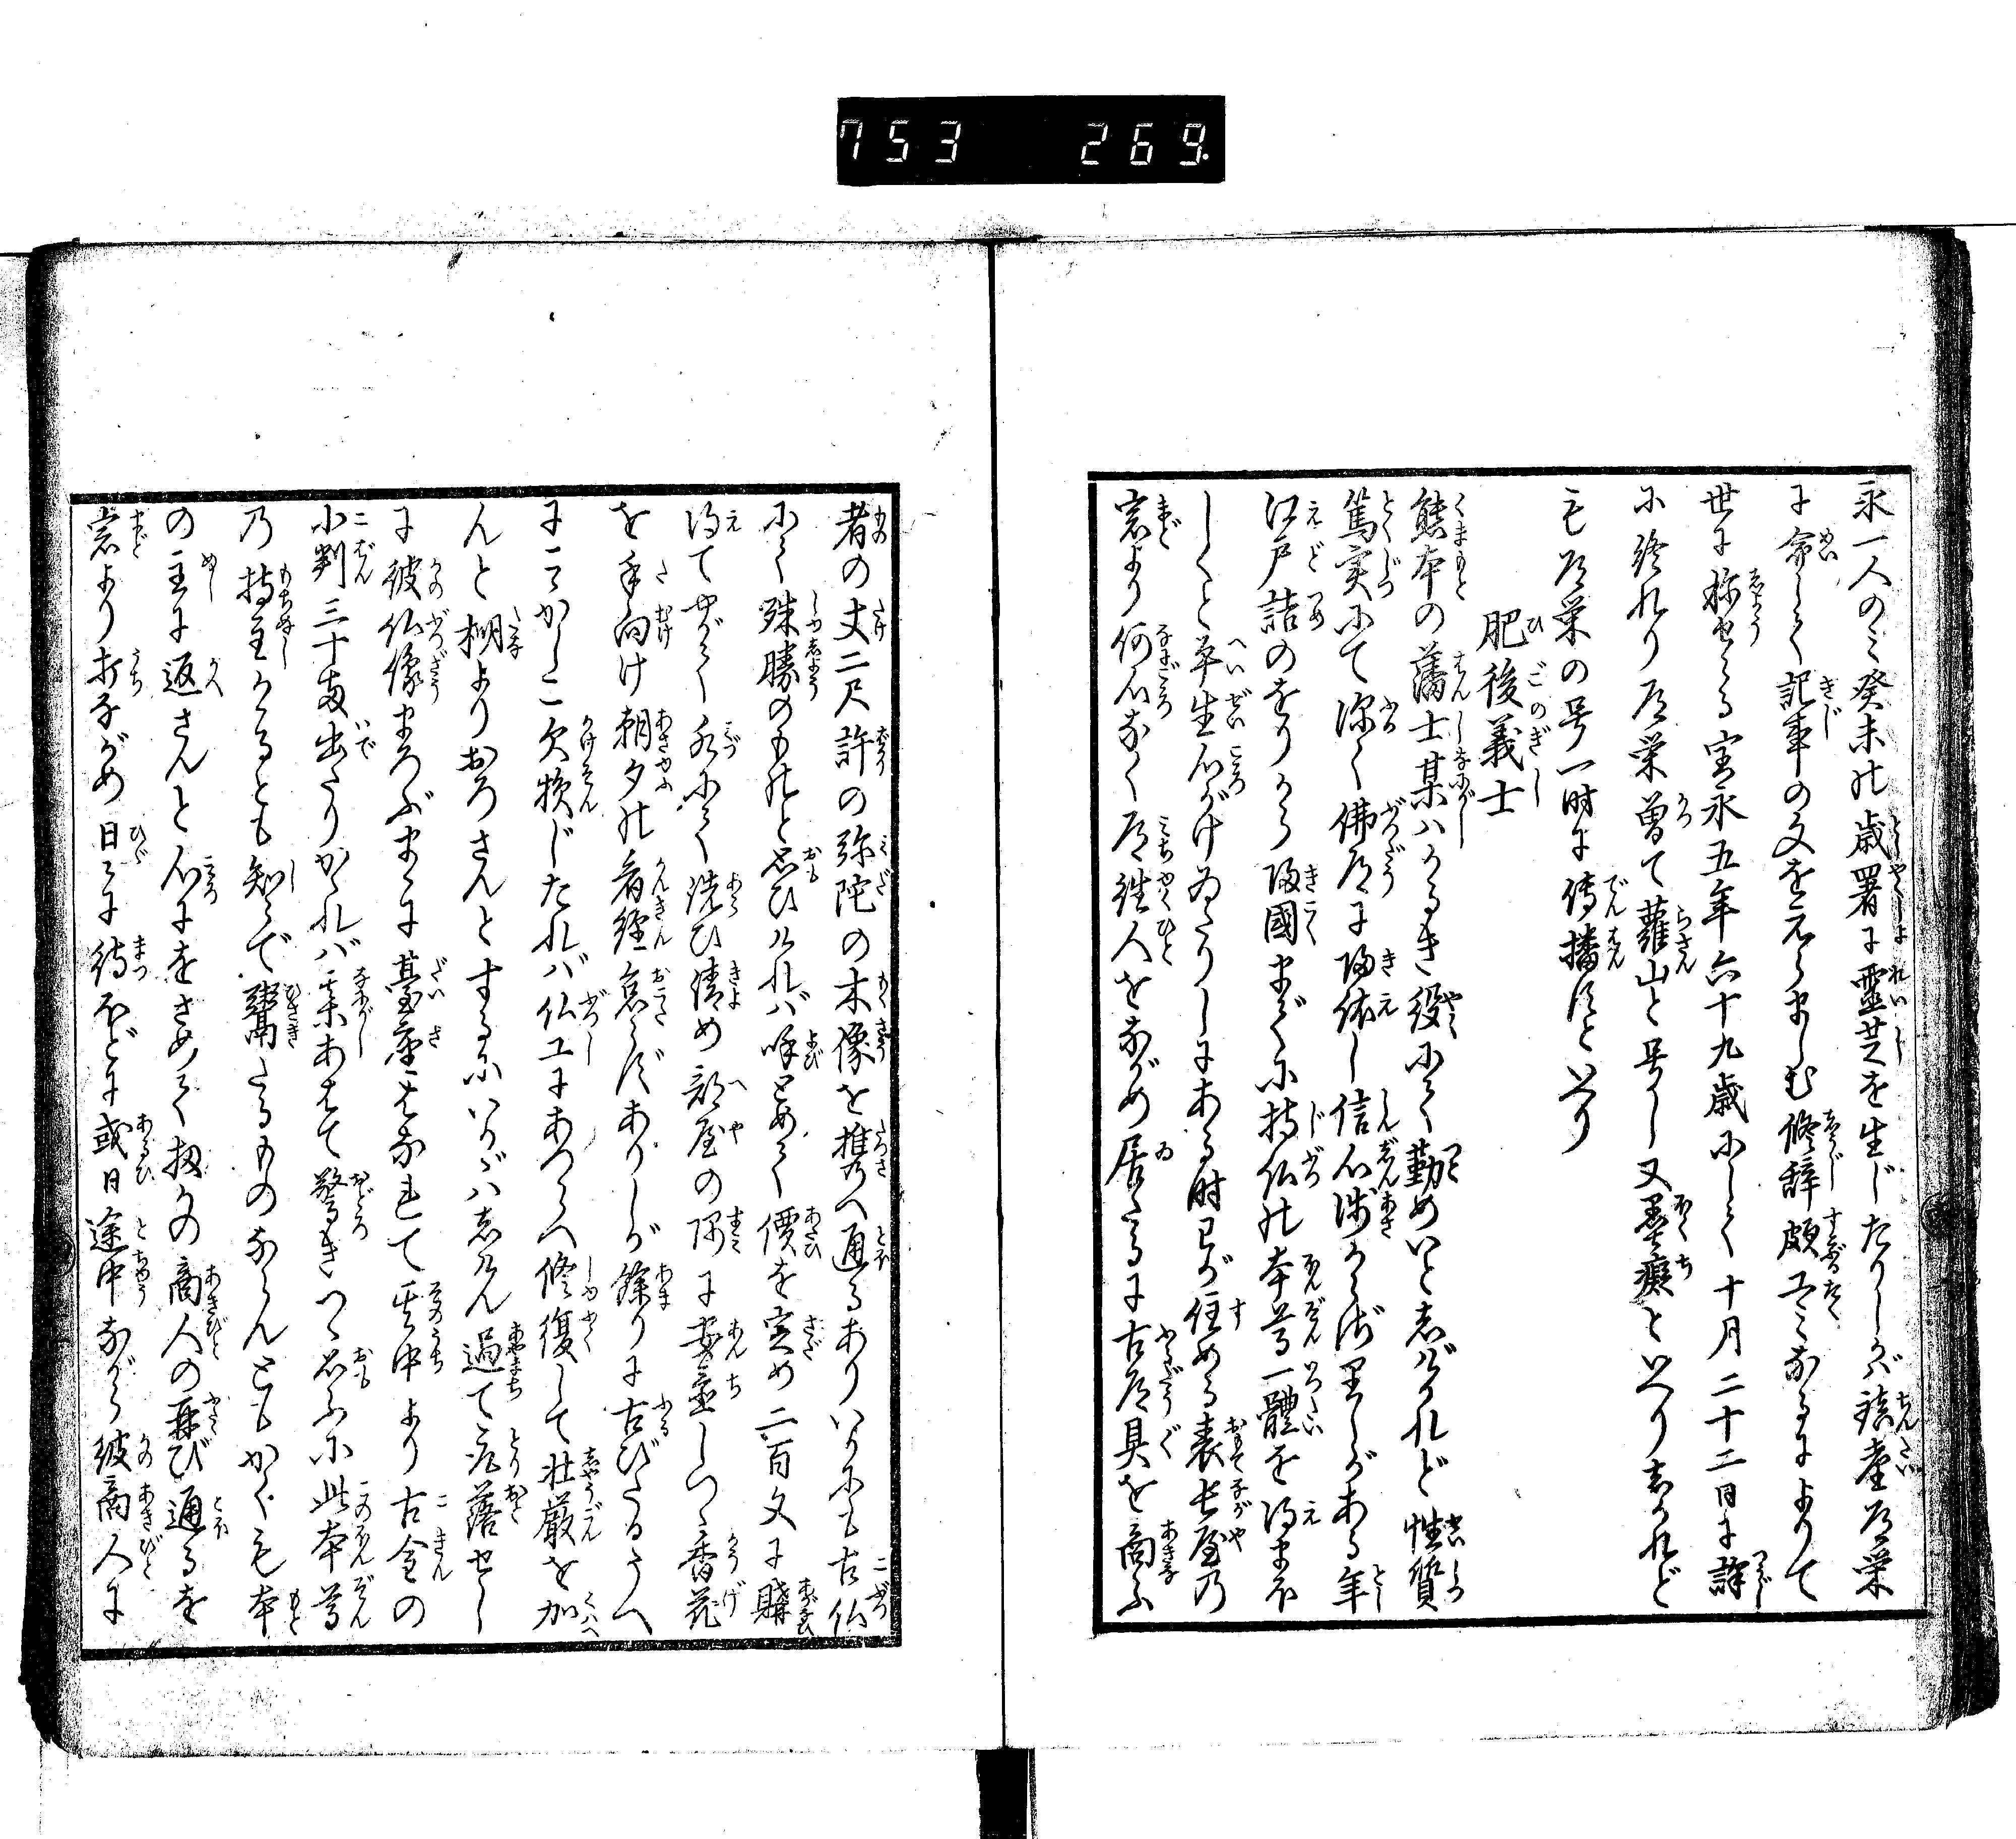 753 269.
永一人のミ癸未の歳署に靈芝を生じたりしかバ鎮臺道栄
に命じて記事の文をえらましむ修辞頗工ミなるによりて
世に称せらる宝永五年六十九歳にして十月二十二日に譁
に終れり道栄曽て蘿山と号し又墨癡といへり志かれど
も道栄の号一時に傳播すといへり
肥後義士
熊本の藩士某ハかるき役にて勤めいと志げゝれど性質
篤実にて深く佛道に帰依し信心浅からざりしがある年
江戸詰のをりから帰國までに持仏の本尊一體を得まほ
しくと平生心がけゐたりしにある時己が住める表長屋乃
窓より何心なく道徃人をながめ居たるに古道具を商ふ
者の丈二尺許の弥陀の木像を携へ通るありいかにも古仏
にて殊勝のものと思ひければ呼とめて價を定め二百文に購
得てやがて水にて洗ひ清め部屋の隅に安置しつゝ香花
を手向け朝夕の看經怠らずありしが餘りに古びたるうへ
にこゝかしこ欠損じたれバ仏工にあつらへ修復して壮厳を加
んと棚よりおろさんとするにいかゞハ志けん過て取落せし
に彼仏像まろぶまゝに臺座はなれて其中より古金の
小判三十両出たりかゝれバ某あきれて驚きつゝ思ふに此本尊
乃持主かゝるとも知らで鬻たるものならんともかくも本
の主に返さんと心にをさめて扨かの商人の再び通るを
窓より打ながめ日々に待ほどに或日途中ながら彼商人に